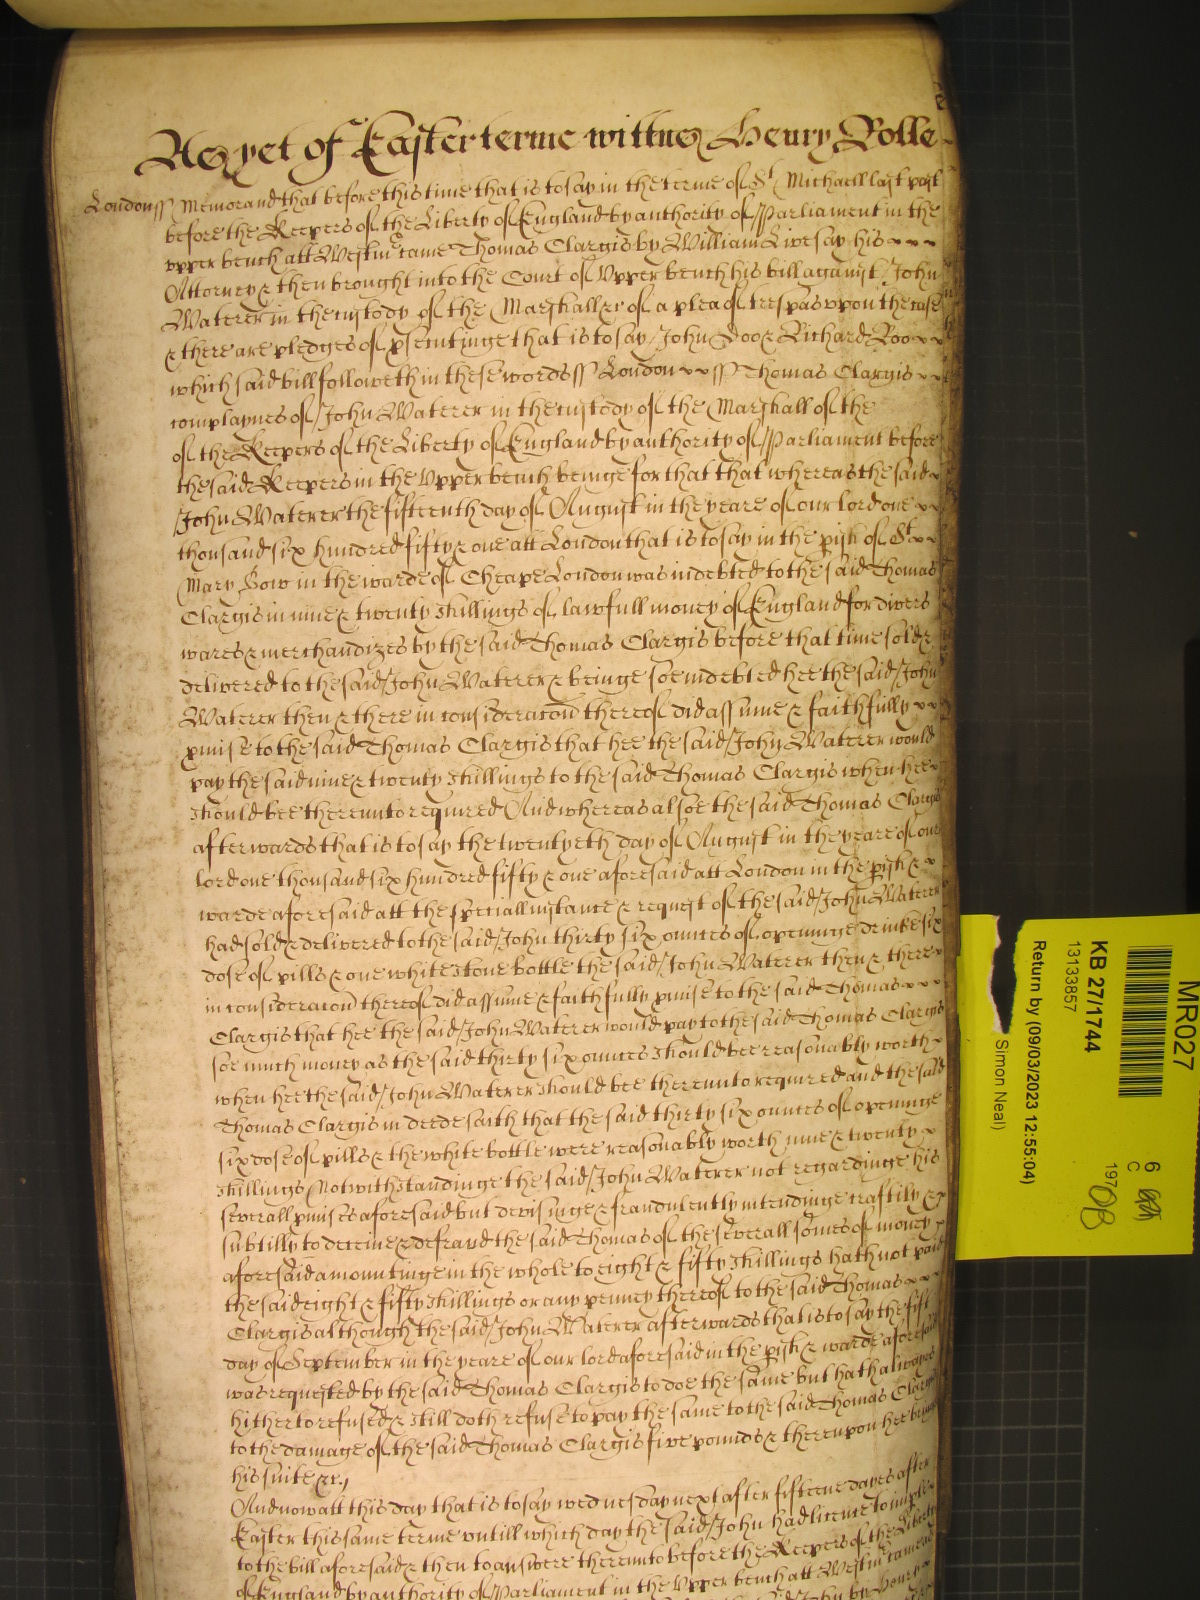 As yet of Easter terme wittnes Henry Rolle
London ss Memorand that before this time that is to say in the terme of St Michaell last past
before the Keepers of the Liberty of England by authority of Parliament in the
upper bench att Westm came Thomas Clargis by William Livesay his
Attorney & then brought into the Court of Upper bench his bill against John
Waterer in the custody of the Marshall &c of a plea of trespas upon the case
& there are pledges of psecutinge that is to say John Doo & Richard Roo
which said bill followeth in these words ss London ss Thomas Clargis
complaynes of John Waterer in the custody of the Marshall of the
of the Keepers of the Liberty of England by authority of Parliament before
the said Keepers in the Upper bench beinge for that that whereas the said
John Waterer the fifteenth day of August in the yeare of our lord one
thousand six hundred fifty & one att London that is to say in the pish of St
Mary Bow in the warde of Cheape London was indebted to the said Thomas
Clargis in nine & twenty shillings of lawfull money of England for divers
wares & merchandizes by the said Thomas Clargis before that time sold &
delivered to the said John Waterer & beinge soe indebted hee the said John
Waterer then & there in consideracon thereof did assume & faithfully
pmise to the said Thomas Clargis that hee the said John Waterer would
pay the said nine & twenty shillings to the said Thomas Clargis when hee
should bee thereunto required And whereas alsoe the said Thomas Clargis
afterwards that is to say the twentyeth day of August in the yeare of our
lord one thousand six hundred fifty & one aforesaid att London in the pish &
warde aforesaid att the speciall instance & request of the said John Waterer
had sold & delivered to the said John thirty six ounces of openinge drinke six
dose of pills & one white stone bottle the said John Waterer then & there
in consideracon thereof did assume & faithfully pmise to the said Thomas
Clargis that hee the said John Waterer would pay to the said Thomas Clargis
soe much money as the said thirty six ounces should bee reasonably worth
when hee the said John Waterer should bee thereunto required and the said
Thomas Clargis in deede saith that the said thirty six ounces of openinge
six dose of pills & the white bottle were reasonably worth nine & twenty
shillings Notwithstandinge the said John Waterer not regardinge his
severall pmises aforesaid but devisinge & fraudulently intendinge craftily &
subtilly to deceive & defraud the said Thomas of the severall somes of money
aforesaid amountinge in the whole to eight & fifty shillings hath not paid
the said eight & fifty shillings or any penney thereof to the said Thomas
Clargis although the said John Waterer afterwards that is to say the first
day of September in the yeare of our lord aforesaid in the pish & warde aforesaid
was requested by the said Thomas Clargis to doe the same but hath alwayes
hitherto refused & still doth refuse to pay the same to the said Thomas Clargis
to the damage of the said Thomas Clargis five pounds & thereupon hee brings
his suite &c.
And now att this day that is to say wednesday next after fifteene dayes after
Easter this same terme untill which day the said John had licence to imple
to the bill aforesaid & then to answere thereunto before the Keepers of the Liberty
of England by authority of Parliament in the Upper bench att Westm came
MR027
6
C
KB 27/1744
13133857
Return by (09/03/2023 12:55:04)
Simon Neal)